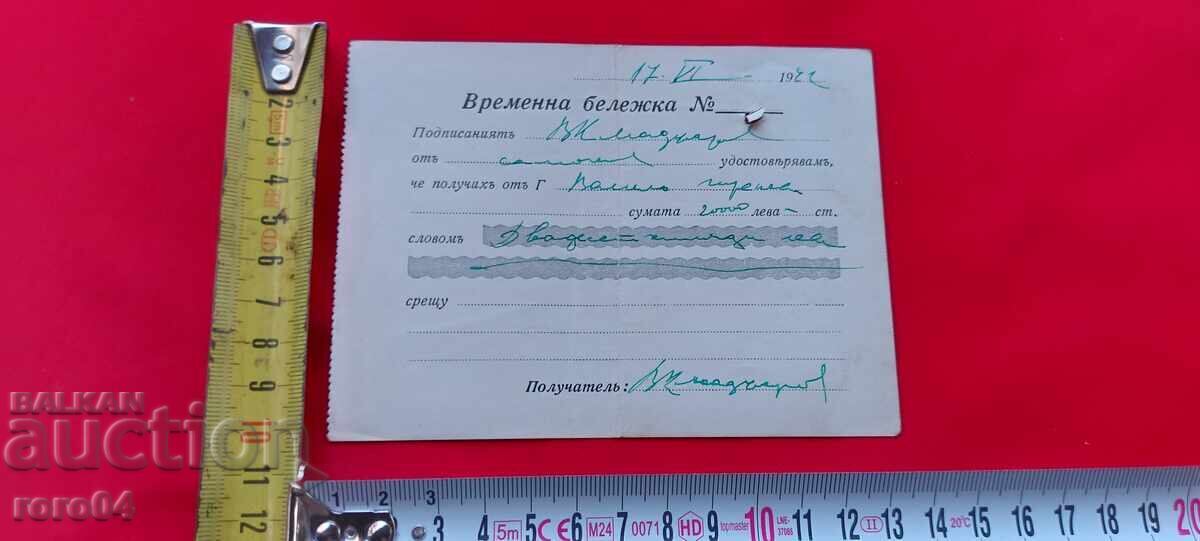 17. VI 1942
Временна бележка №
Подписаниятъ В К Маджаров
отъ удостовѣрявамъ,
че получихъ отъ Г
сумата 20000 лева - ст.
словомъ Двадесет хиляди лева
срещу
Получатель: В К Маджаров
BALKAN
auction
roro04
2 3 4 5 6 7 8 9 10 11 12
1 2 3
3 4 5m 5 CE 6 M24 7 0071 8 HD 9 topmaster 10 LNE-37085 11 12 II 13 14 20°C 15 16 17 18 19 20